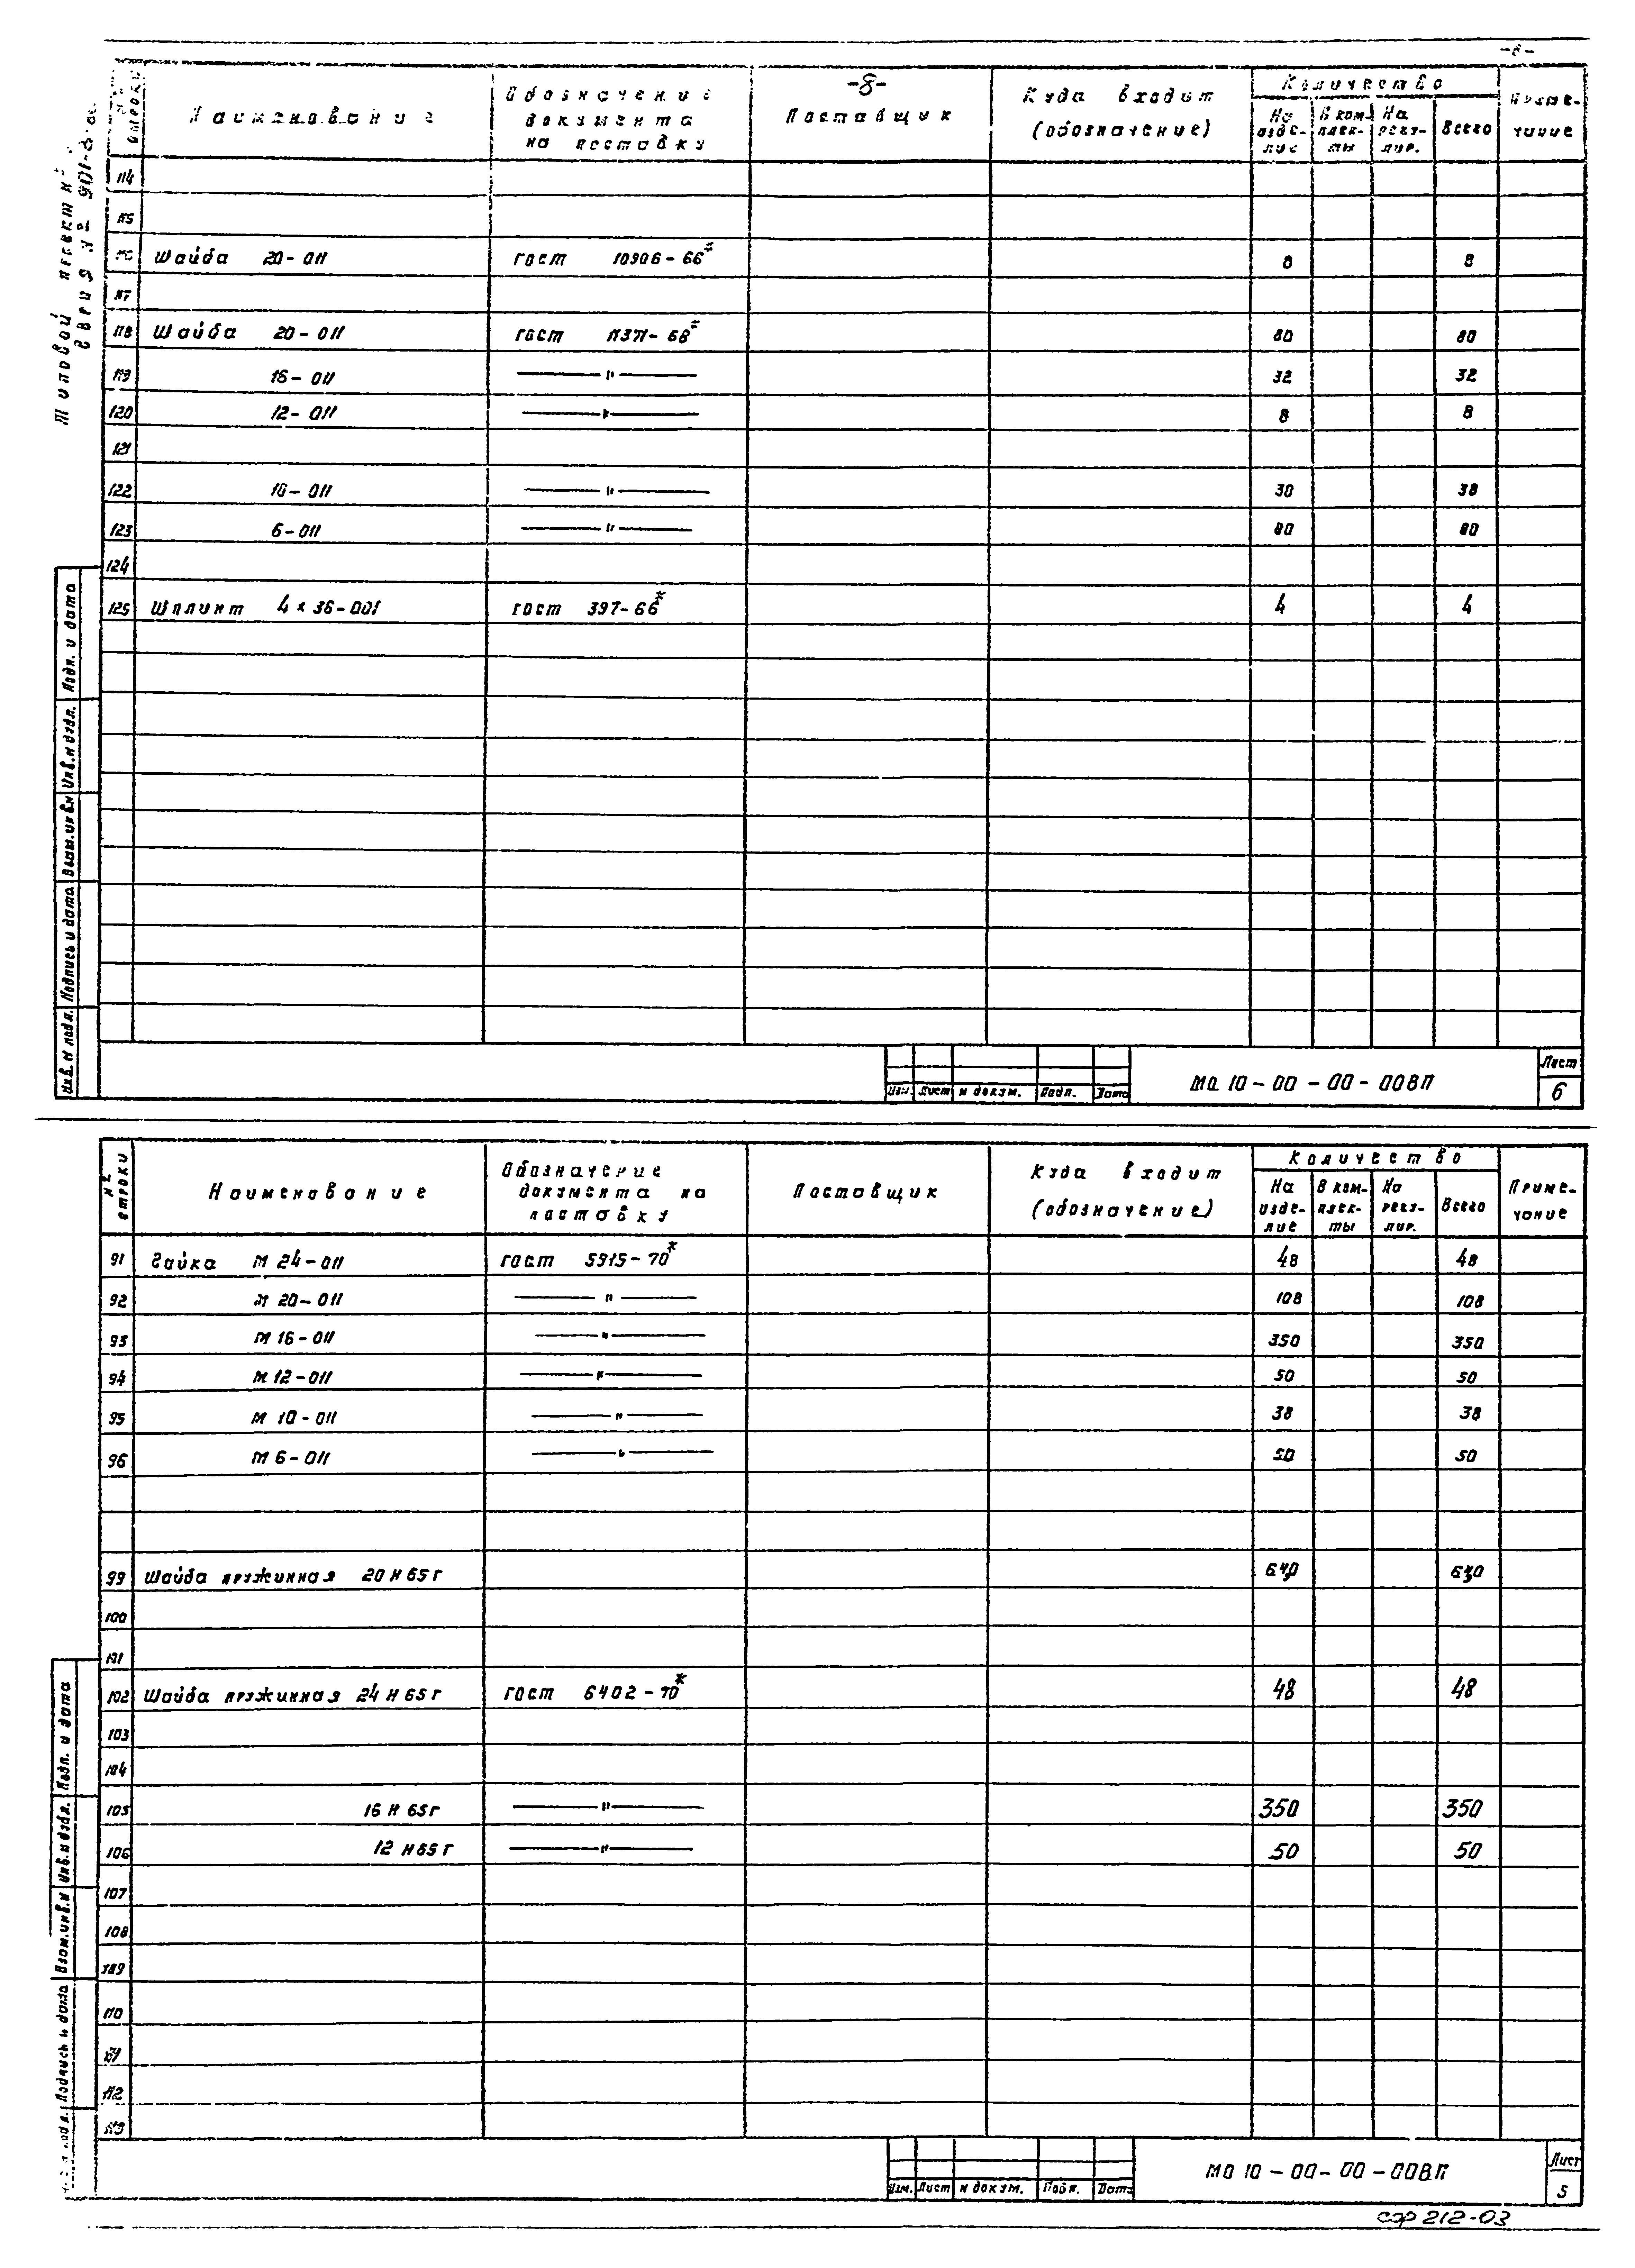 -8-
-8-
№ строки
Наименование
Обозначение документа на поставку
Поставщик
Куда входит (обозначение)
Количество
На изде-лие
В ком-плек-ты
На регу-лир.
Всего
Приме-чание
Типовой проект №
Серия № 901-8-
114
115
116 Шайба 20-011 гост 10906-66* 8 8
117
118 Шайба 20-011 гост 11371-68* 80 80
119 16-011 —"— 32 32
120 12-011 —"— 8 8
121
122 10-011 —"— 38 38
123 6-011 —"— 80 80
124
125 Шплинт 4x36-001 гост 397-66* 4 4
Подп. и дата
Инв. н дубл.
Взам. инв. н
Подпись и дата
Инв. н подл.
Изм. Лист н докум. Подп. Дата
МО 10-00-00-00ВП
Лист
6
№ строки
Наименование
Обозначение документа на поставку
Поставщик
Куда входит (обозначение)
Количество
На изде-лие
В ком-плек-ты
На регу-лир.
Всего
Приме-чание
91 Гайка М 24-011 гост 5915-70* 48 48
92 М 20-011 —"— 108 108
93 М 16-011 —"— 350 350
94 М 12-011 —"— 50 50
95 М 10-011 —"— 38 38
96 М 6-011 —"— 50 50
99 Шайба пружинная 20 Н 65г 640 640
100
101
102 Шайба пружинная 24 Н 65г гост 6402-70* 48 48
103
104
105 16 Н 65г —"— 350 350
106 12 Н 65г —"— 50 50
107
108
109
110
111
112
113
Подп. и дата
Инв. н дубл.
Взам. инв. н
Подпись и дата
Изм. Лист н докум. Подп. Дата
МО 10-00-00-00ВП
Лист
5
сэр 212-03